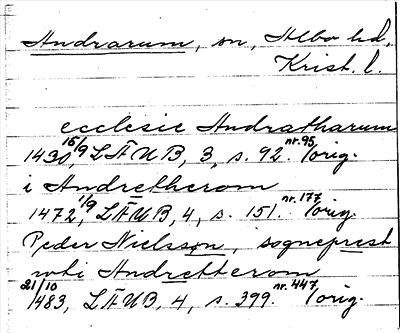 Andrarum, sn, Albo hd,
Krist. l.
ecclesie Andratharum
1430 15/9, LÄUB, 3, s. 92. nr. 95 /orig.
i Andretherom
1472, 1/9 LÄUB, 4, s. 151. nr. 177 /orig.
Peder Nielssøn, sogneprest
wti Andretterom
21/10 1483, LÄUB, 4, s. 399. nr. 447 /orig.